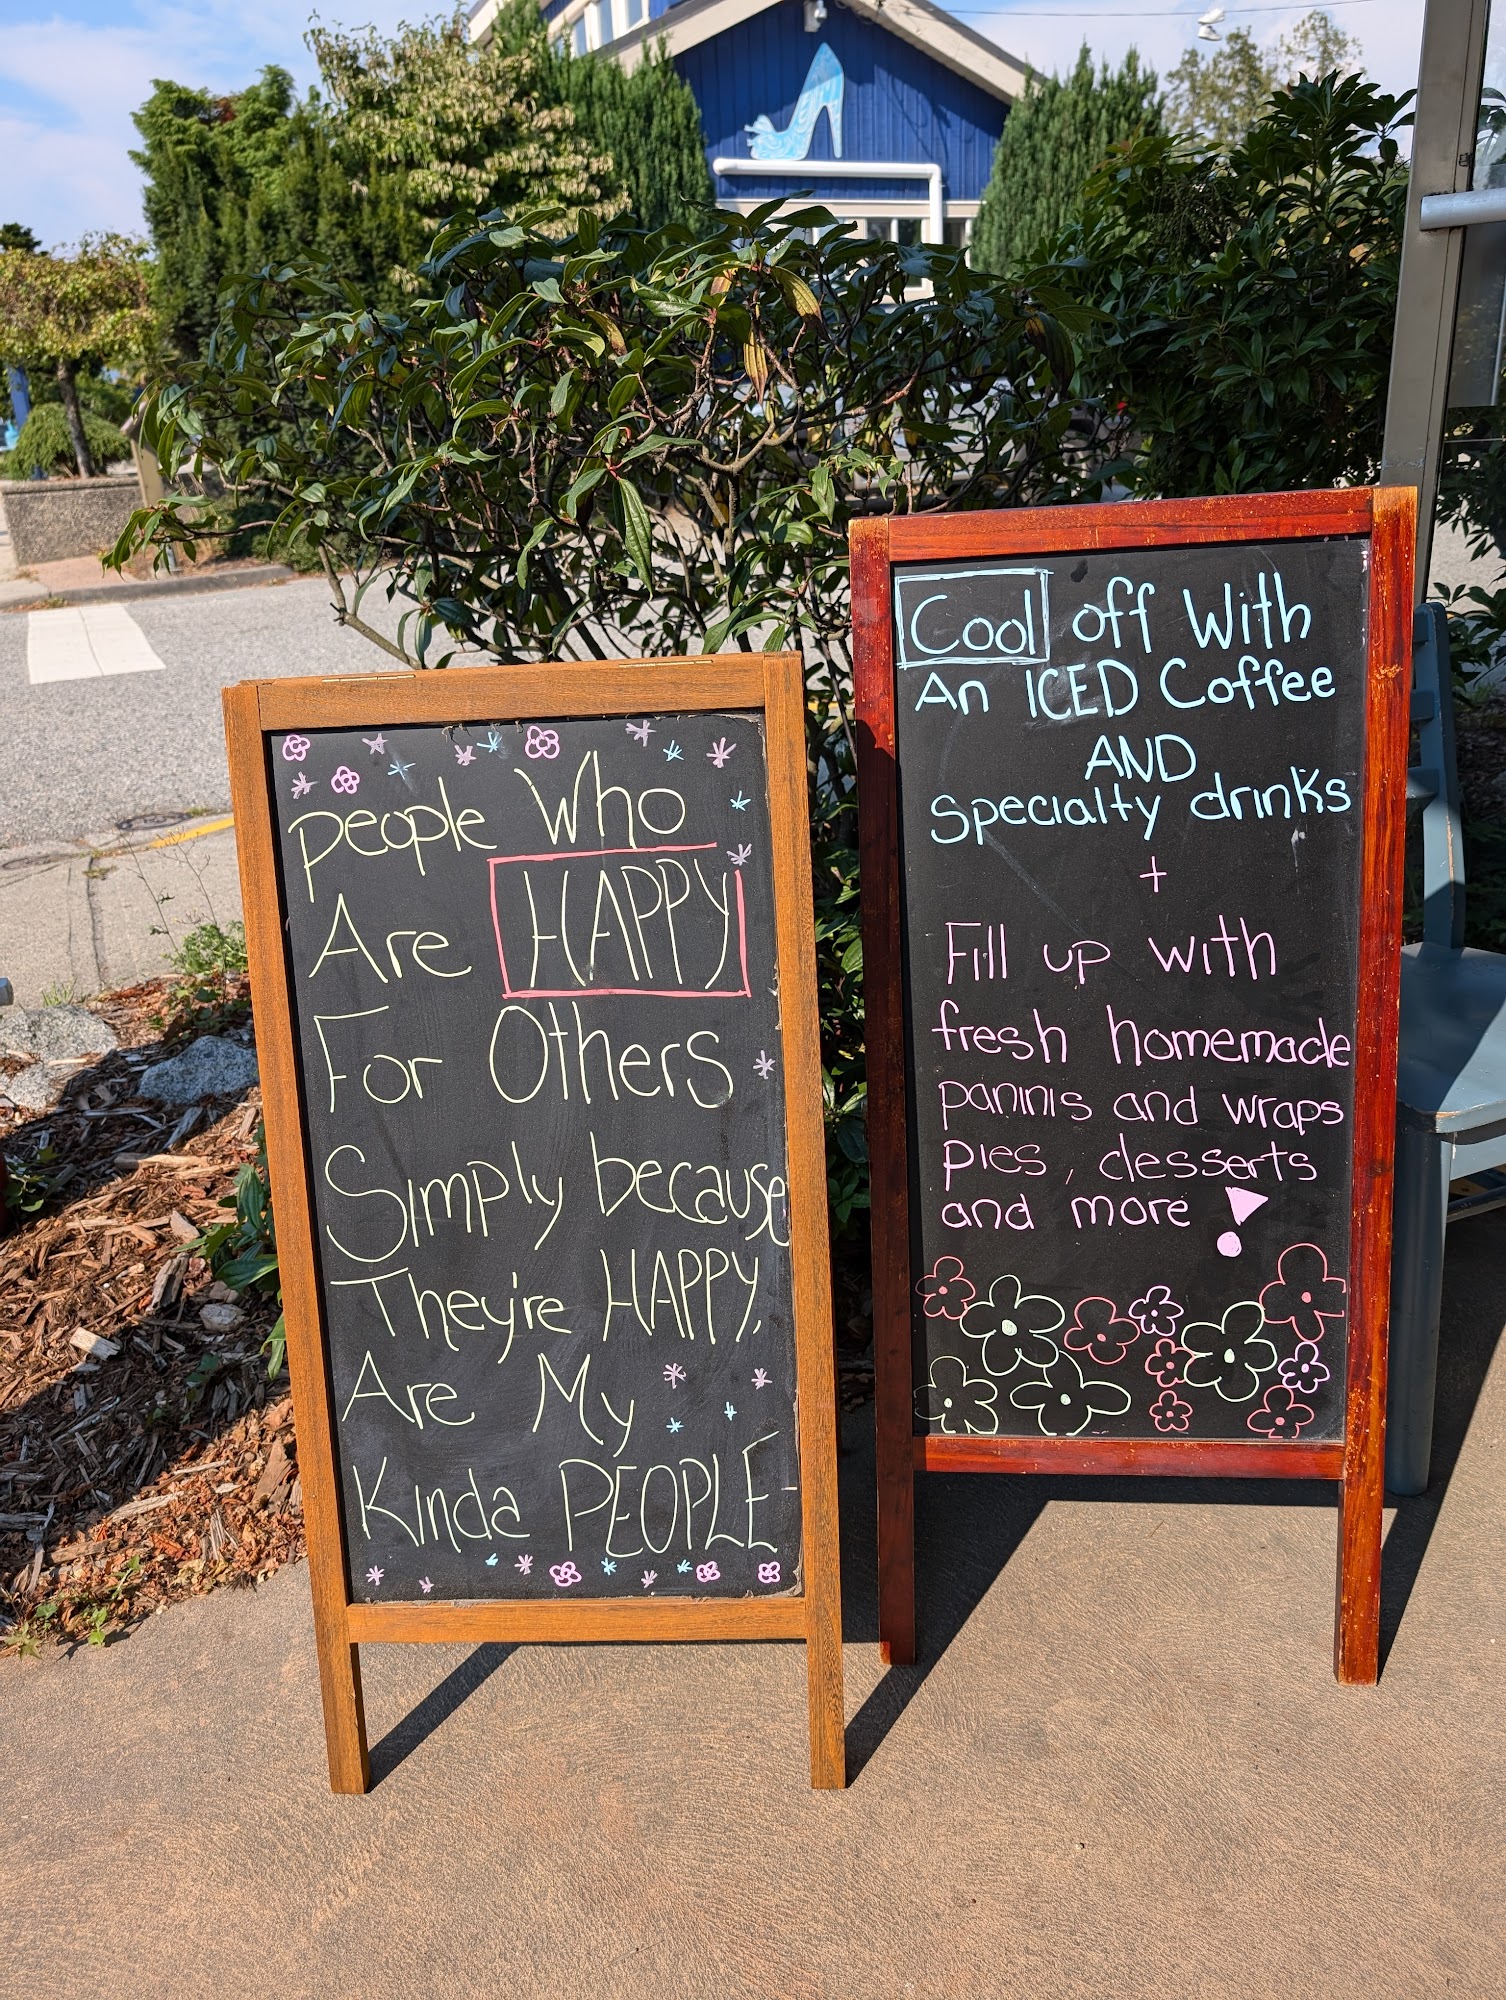 people Who
Are HAPPY
For Others
Simply because
They're HAPPY,
Are My
Kinda PEOPLE-
Cool off With
An ICED Coffee
AND
Specialty drinks
+
Fill up with
fresh homemade
paninis and wraps
pies, desserts
and more!